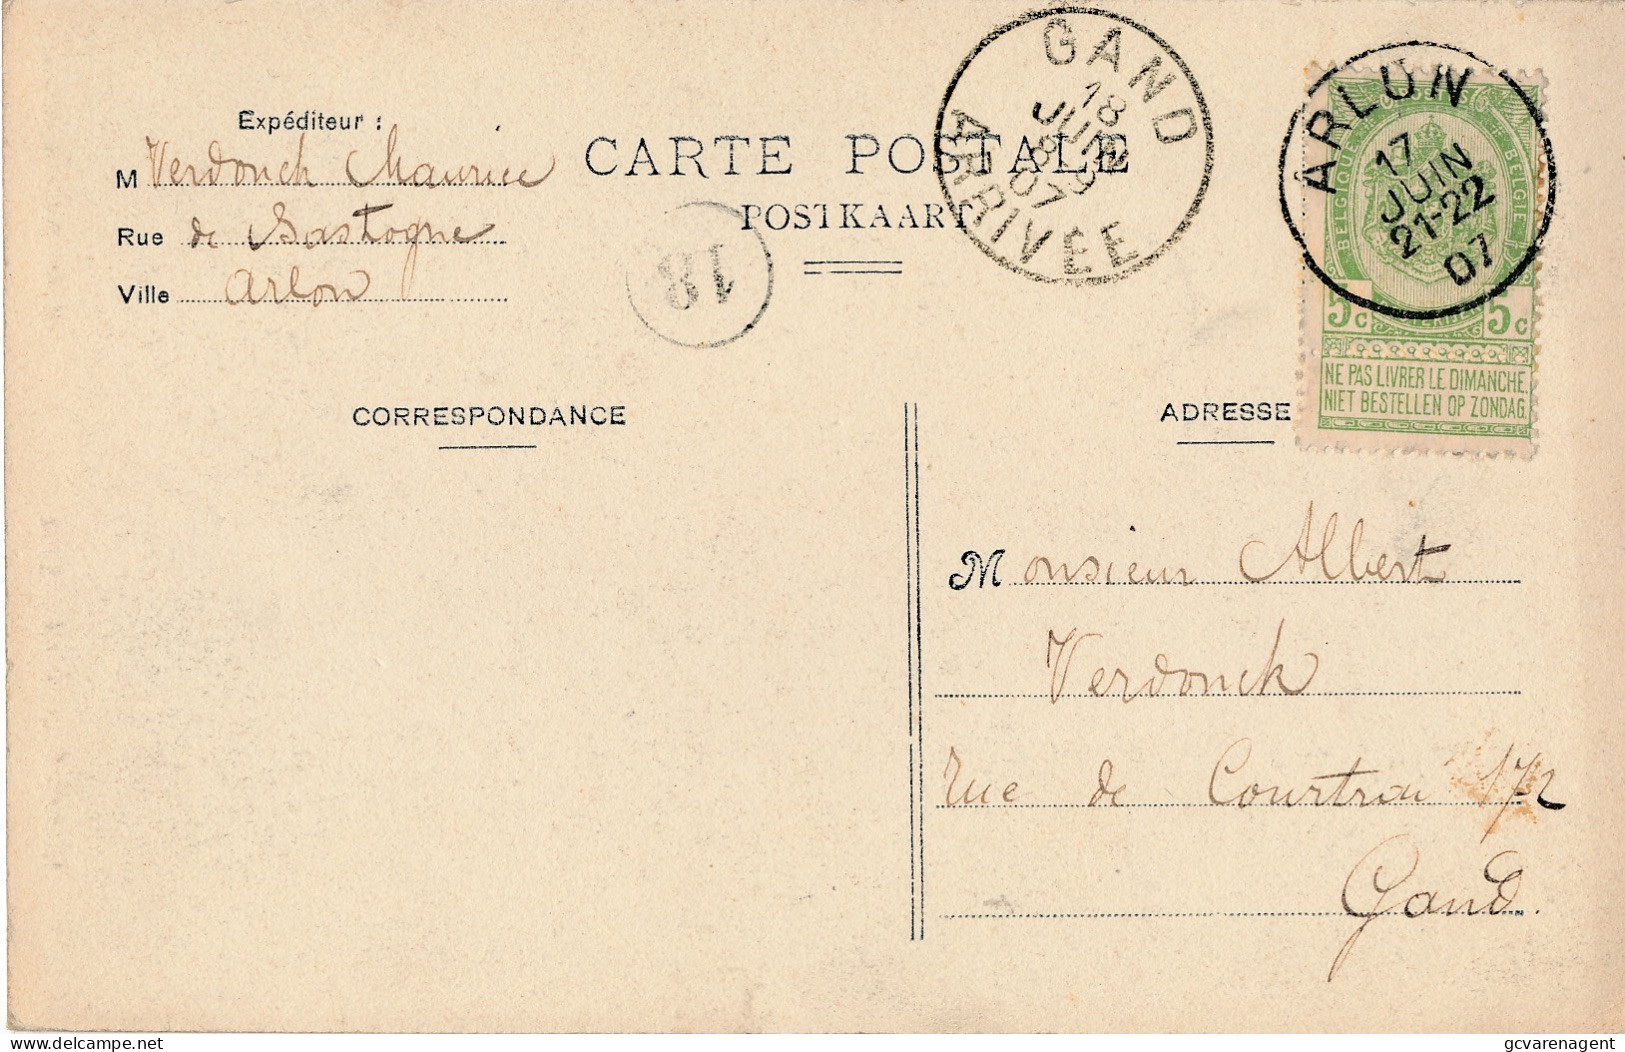 Expéditeur :
M Verdonck Maurice
Rue de Bastogne
Ville Arlon
CARTE POSTALE
POSTKAART
18
GAND
18
JUIN
07
ARRIVÉE
ARLON
17
JUIN
21-22
07
BELGIQUE BELGIE
5c 5c
NE PAS LIVRER LE DIMANCHE,
NIET BESTELLEN OP ZONDAG.
CORRESPONDANCE
ADRESSE
Monsieur Albert
Verdonck
rue de Courtrai 172
Gand.
delcampe.net
gcvarenagent